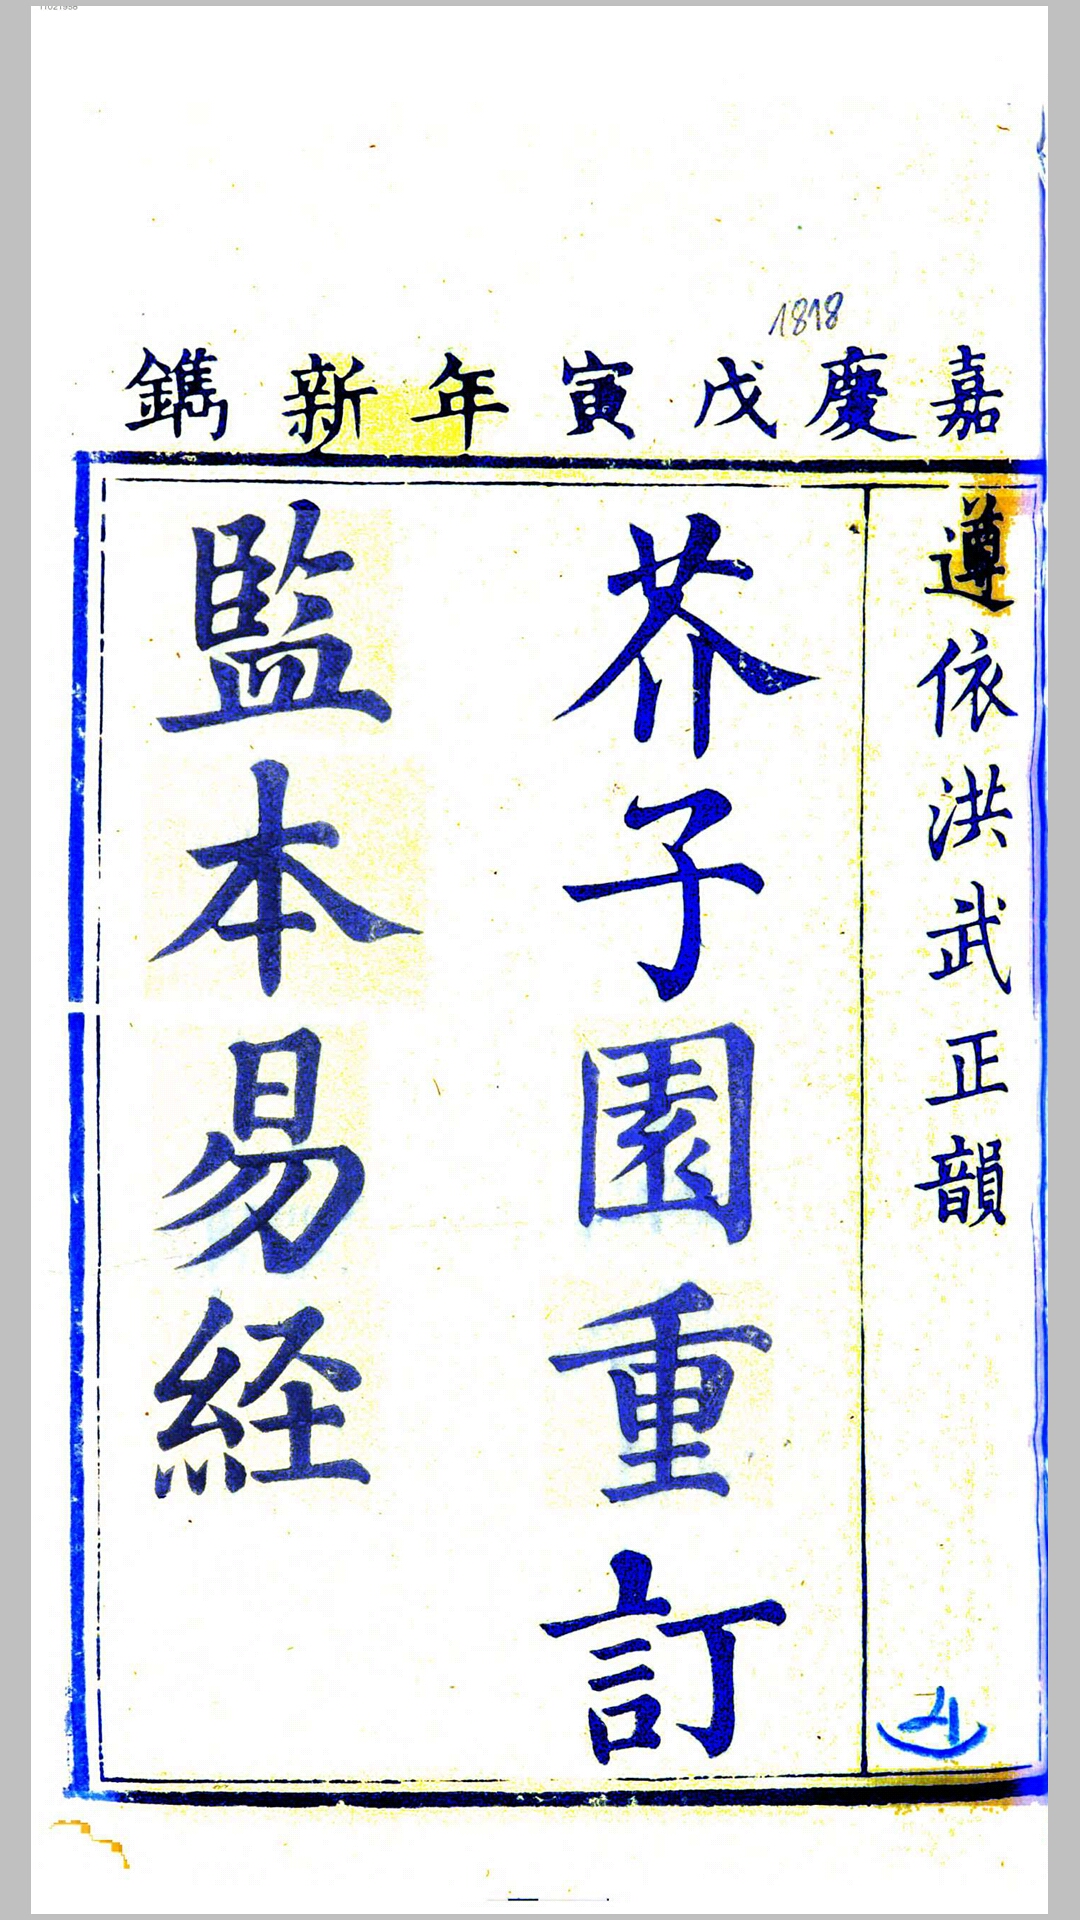 嘉慶戊寅年新鐫
1818
遵依洪武正韻
芥子園重訂
監本易経